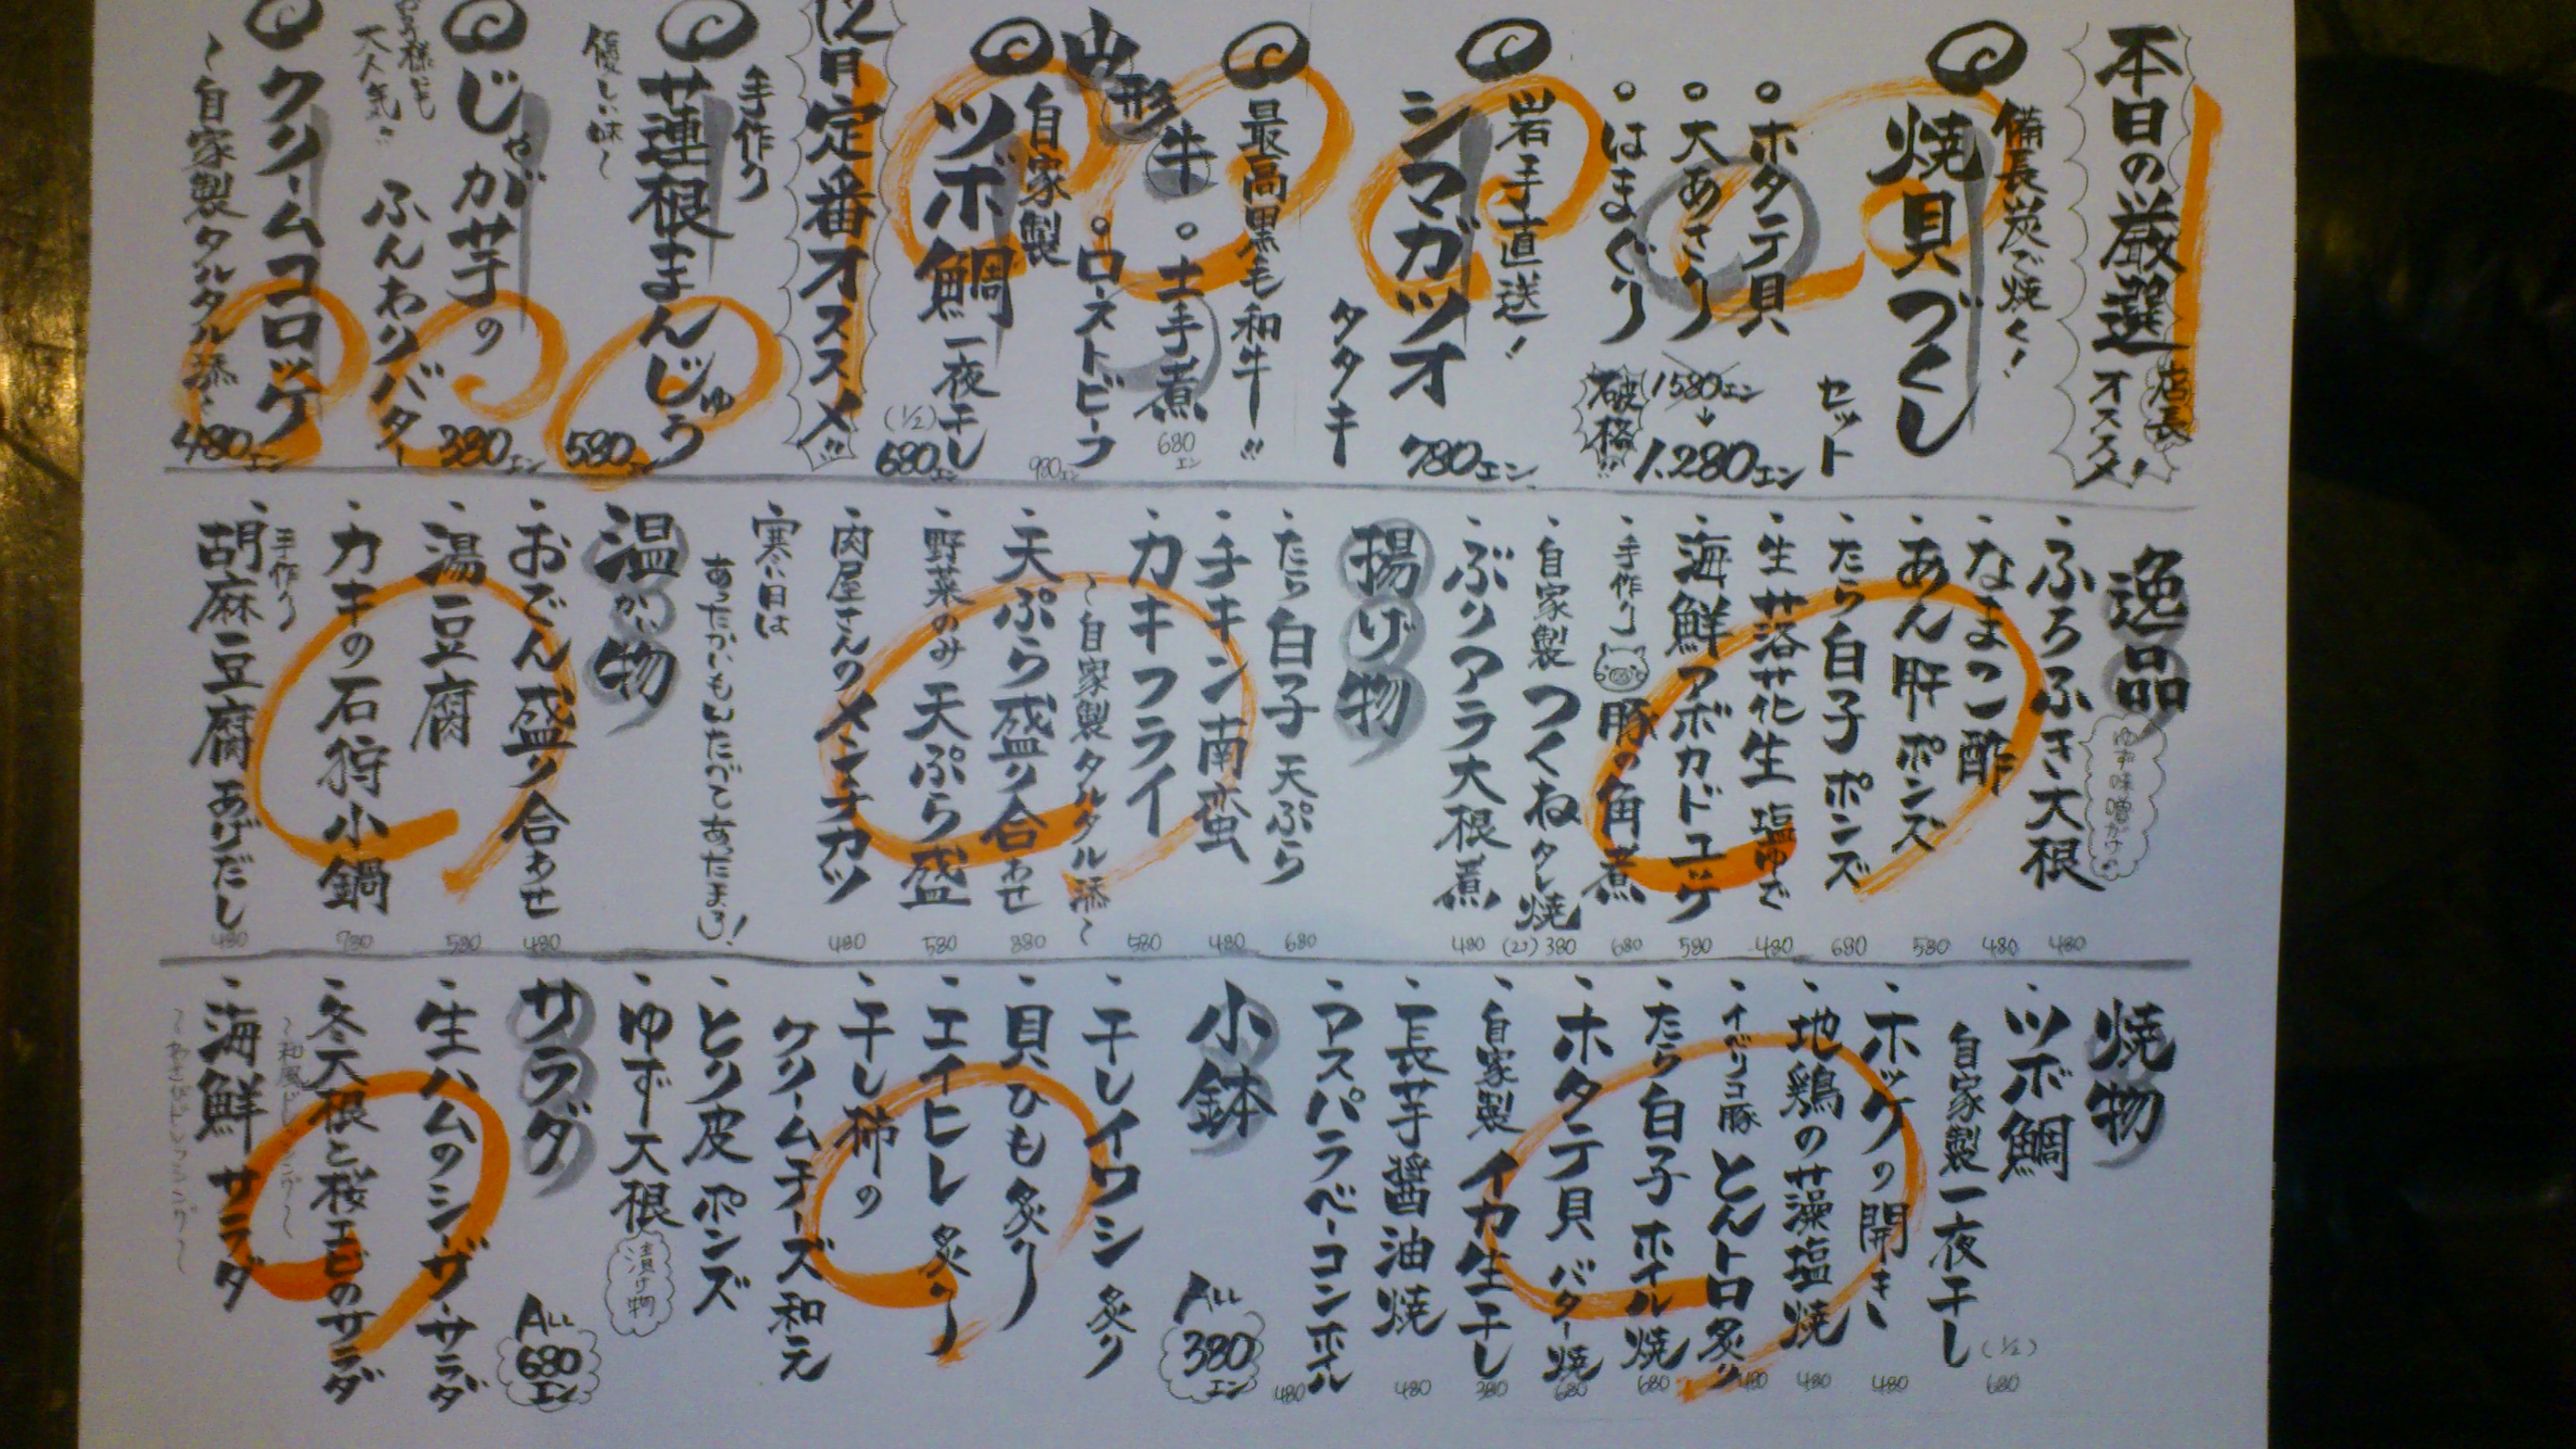 本日の厳選
店長
オススメ!
備長炭で焼く!
焼貝づくし
セット
・ホタテ貝
・大あさり
・はまぐり
1580エン
↓
1.280エン
破格!!
岩手直送!
シマガツオ
タタキ
780エン
最高黒毛和牛!!
山形牛
・土手煮
680エン
・ローストビーフ
980エン
自家製
ツボ鯛一夜干し
(1/2)
680エン
12月定番オススメ!!
手作り
蓮根まんじゅう
優しい味〜
580エン
じゃが芋の
ふんわりバター
380エン
大人気!!
クリームコロッケ
〜自家製タルタル添〜
480エン
逸品
・ふろふき大根
ゆず味噌がけ
480
・なまこ酢
480
・あん肝ポンズ
580
・たら白子ポンズ
680
・生落花生塩ゆで
480
・海鮮アボカドユッケ
580
・手作り豚の角煮
680
・自家製つくねタレ焼
(2コ)380
・ぶりアラ大根煮
480
揚げ物
・たら白子天ぷら
680
・チキン南蛮
480
・カキフライ
〜自家製タルタル添〜
580
・天ぷら盛り合わせ
880
・野菜のみ天ぷら盛
580
・肉屋さんのメンチカツ
480
・寒い日は
あったかいもんたべてあったまろ!
温かい物
・おでん盛り合わせ
480
・湯豆腐
580
・カキの石狩小鍋
780
・手作り
胡麻豆腐あげだし
480
焼物
・ツボ鯛
自家製一夜干し
(1/2)
680
・ホッケの開き
480
・地鶏の藻塩焼
480
・イベリコ豚とんトロ炙り
480
・たら白子ホイル焼
680
・ホタテ貝バター焼
680
・自家製イカ生干し
380
・長芋醤油焼
480
・アスパラベーコンホイル
480
小鉢
ALL
380エン
・干しイワシ炙り
・貝ひも炙り
・エイヒレ炙り
・干し柿の
クリームチーズ和え
・とり皮ポンズ
・ゆず大根
漬け物
サラダ
ALL
680エン
・生ハムのシーザーサラダ
・冬大根と桜エビのサラダ
・海鮮サラダ